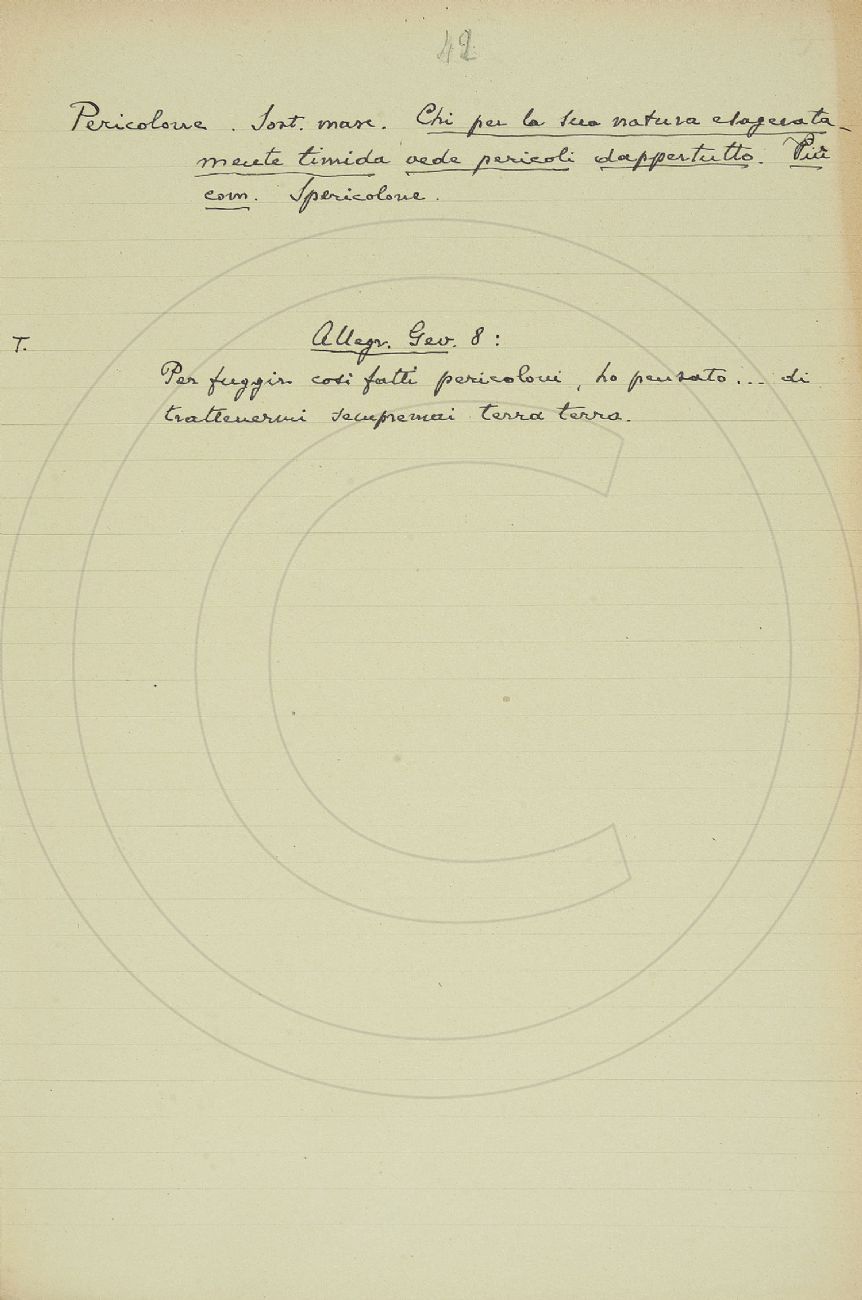 42
Pericolone. Sost. masc. Chi per la sua natura esagerata-
mente timida vede pericoli dappertutto. Più
com. Spericolone.
T. Allegr. Gev. 8:
Per fuggir così fatti pericoloni, ho pensato... di
trattenermi sempremai terra terra.